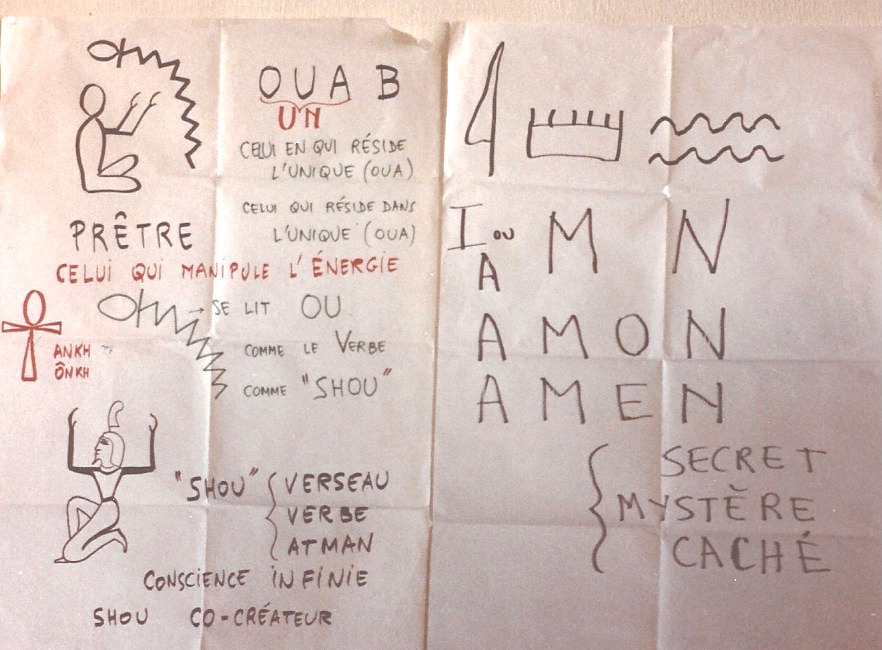 OUAB
UN
CELUI EN QUI RÉSIDE
L'UNIQUE (OUA)
CELUI QUI RÉSIDE DANS
L'UNIQUE (OUA)
PRÊTRE
CELUI QUI MANIPULE L'ÉNERGIE
→ SE LIT OU
COMME LE VERBE
COMME "SHOU"
ANKH
ÔNKH
"SHOU" { VERSEAU
VERBE
ATMAN
CONSCIENCE INFINIE
SHOU CO-CRÉATEUR
I OU A M N
A M O N
A M E N
{ SECRET
MYSTÈRE
CACHÉ